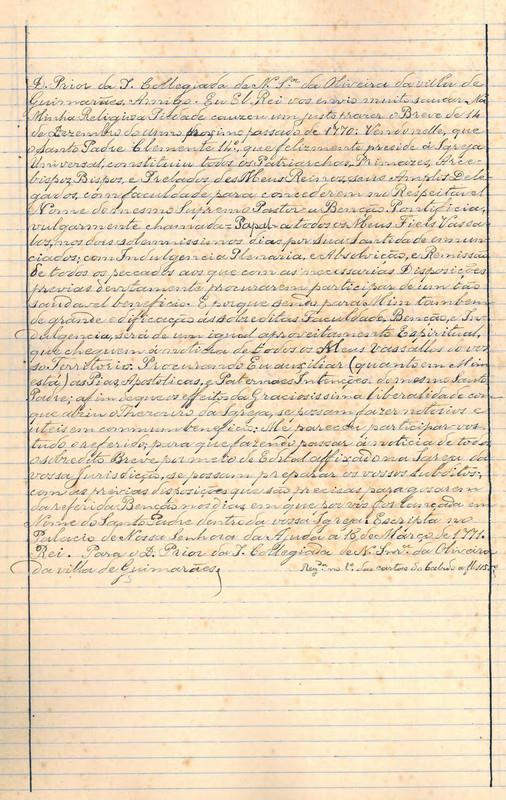 D. Prior da I. Collegiada de N. Sr.ª da Oliveira da villa de
Guimarães, Amigo. Eu El Rei vos envio muito saudar. Na
Minha Religiosa Piedade causou um justo prazer o Breve de 14
de Dezembro do anno proximo passado de 1770: Vendo nelle, que
o Santo Padre Clemente 14º, que felizmente preside á Igreja
Universal, constituiu todos os Patriarchas, Primazes, Arce-
bispos, Bispos, e Prelados dos Meus Reinos, seus Amplos Dele-
gados, com faculdade para concederem no Respeitavel
Nome do mesmo Supremo Pastor a Benção Pontificia,
vulgarmente chamada = Papal = á todos os Meus Fieis Vassa-
los, nos dous solemnissimos dias por Sua Santidade ennun-
ciados; com Indulgencia Plenaria, e Absolvição, e Remissão
de todos os peccados aos que com as necessarias Disposições
previas devotamente procurarem participar de um tão
saudavel beneficio. E porque sendo para Mim tambem
de grande edificação as sobreditas Faculdade, Benção, e In-
dulgencia, será de um igual aproveitamento Espiritual,
que cheguem á noticia de todos os Meus Vassallos do vos-
so Territorio. Procurando Eu auxiliar (quanto em Mim
está) as Pias, Apostolicas, e Paternaes Intenções do mesmo Santo
Padre; afim de que os effeitos da Graciosissima liberalidade com
que abriu o Thesouro da Igreja, se possam fazer notorios e
uteis em commum beneficio: Me pareceu participar-vos
tudo o referido; para que fazendo passar á noticia de todos
o sobredito Breve por meio de Edital affixado na Igreja da
vossa Jurisdicção, se possam preparar os vossos subditos;
com as previas disposições que são precisas para gosarem
da referida Benção nos dias, em que por vós fôr lançada em
Nome do Santo Padre dentro da vossa Igreja. Escripta no
Palacio de Nossa Senhora da Ajuda a 16 de Março de 1771.
Rei. Para o D. Prior da I. Collegiada de N. Snr.ª da Oliveira
da villa de Guimarães,
Reg.da no L.º das cartas do Cabido a fl. 115